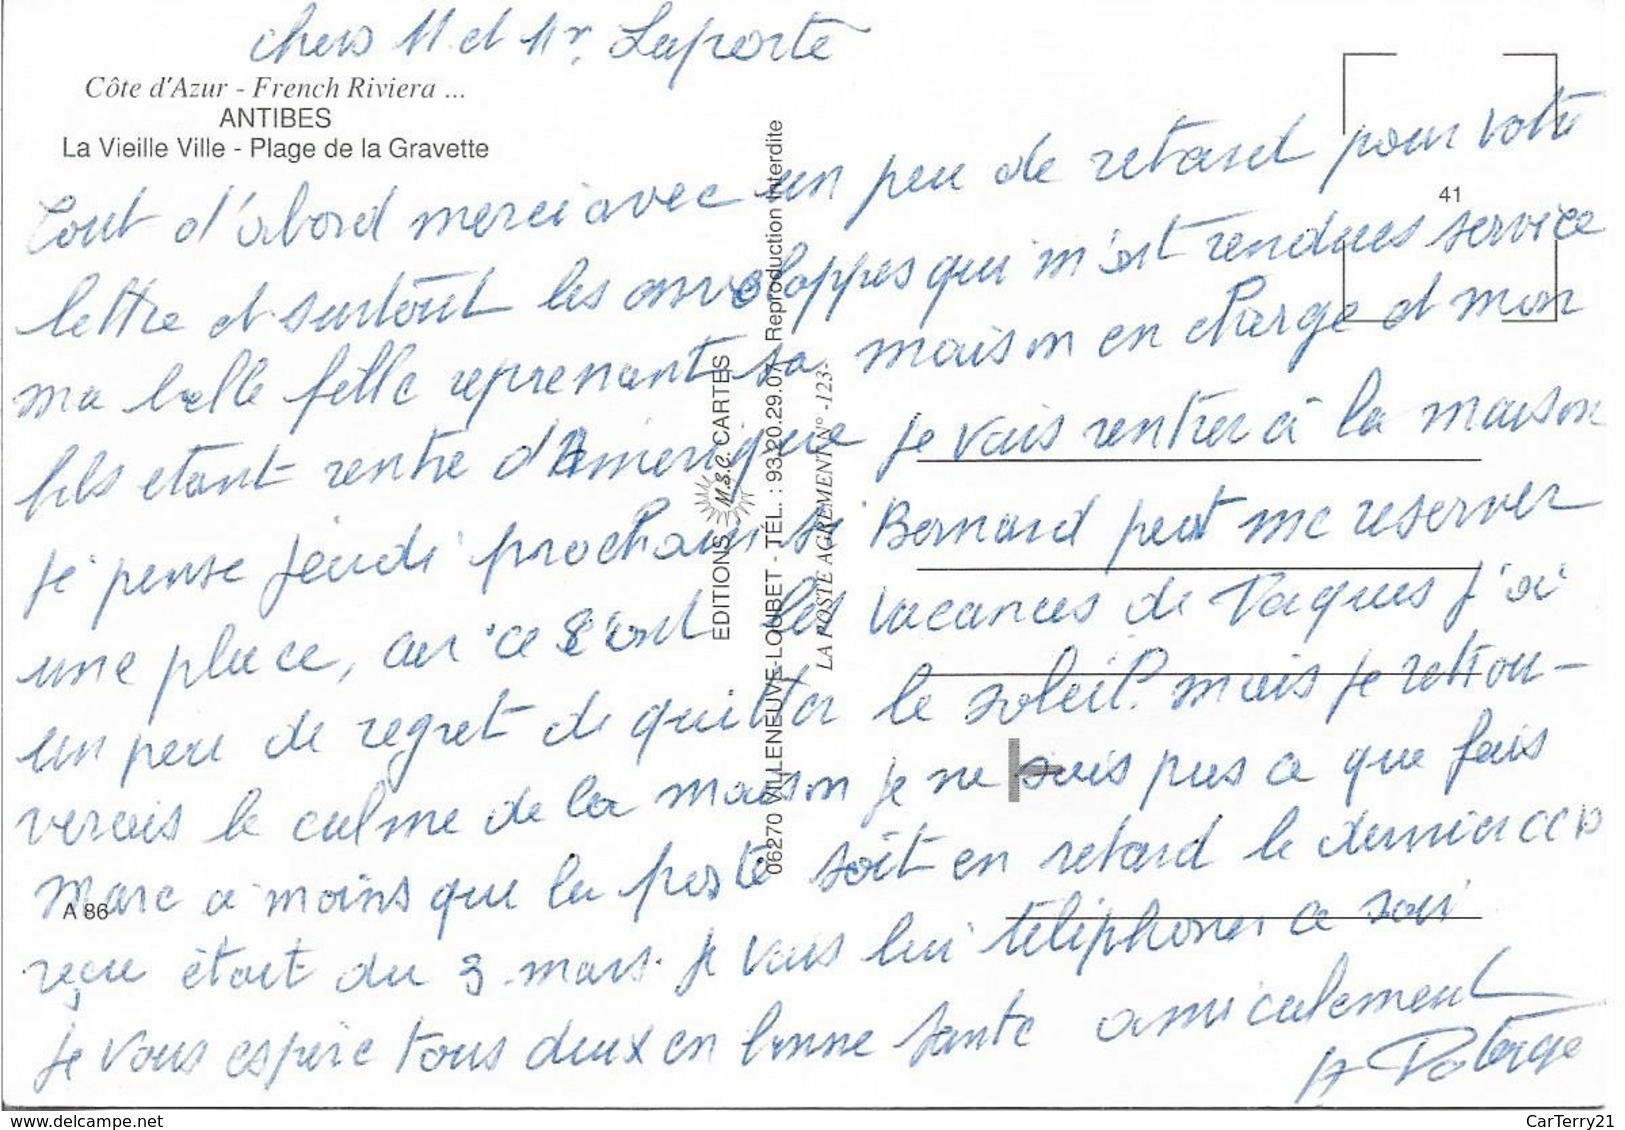 chers M et Mr. Laporte
Côte d'Azur - French Riviera ...
ANTIBES
La Vieille Ville - Plage de la Gravette
41
Tout d'abord merci avec un peu de retard pour votre
lettre et surtout les enveloppes qui m'ont rendues service
ma belle fille reprenant sa maison en charge et mon
fils etant rentre d'Amerique je vais rentrer à la maison
je pense jeudi prochain si Bernard peut me reserver
une place, car ce sont les vacances de Paques j'ai
un peu de regret de quitter le soleil. mais je retrou-
verais le calme de la maison je ne sais pas ce que fais
Marc a moins que la poste soit en retard le dernier CCP
reçu était du 3 mars. je vais lui téléphoner ce soir
je vous espère tous deux en bonne sante amicalement
EDITIONS M.S.C. CARTES
06270 VILLENEUVE-LOUBET - TÉL. : 93.20.29.07 - Reproduction Interdite
LA POSTE AGREMENT N° -123-
A 86
CarTerry21